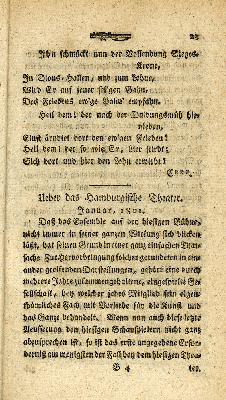 23
Ihn schmückt nun der Vollendung Sieges-
Krone,
In Dious-Hallen, und zum Lohne,
Wird Er auf jener selgen Bahn,
Des Friedens ew'ge Palm' empfahn.
Heil dem! der nach der Duldungsmüh hie-
nieden,
Einst ärndtet dort den ewigen Frieden!
Heil dem! der so wie Er, hier strebt;
Sich dort und hier den Lohn erwirbt!
Ueber das Hamburgische Theater.
Januar, 1801.
Daß das Ensemble auf der hiesigen Bühne,
nicht immer in seiner ganzen Wirkung sich blicken
läßt, hat seinen Grund in einer ganz einfachen Ursache
Zur Hervorbringung solcher gerundeten in ein-
ander greifenden Darstellungen, gehört eine durch
mehrere Jahre zusammengehaltene, eingespielte Ge-
sellschaft, bey welcher jedes Mitglied sein eigen-
thümliches Fach mit Vorliebe für die Kunst und
das Ganze behandelt. Wenn nun auch diese letzte
Aeusserung den hiesigen Schauspielern nicht ganz
abzusprechen ist, so ist das erste angegebene Erfo-
derniß am wenigsten der Fall bey dem hiesigen Thea-
B 4
ter.